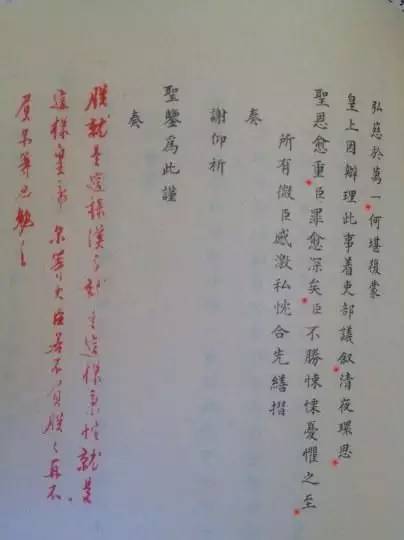 弘慈於萬一何堪復蒙
皇上因辦理此事着吏部議叙清夜環思
聖恩愈重臣罪愈深矣臣不勝悚慄憂懼之至
所有微臣感激私忱合先繕摺
奏
謝仰祈
聖鑒為此謹
奏
朕就是這樣漢子就是這樣秉性就是
這樣皇帝尔等大臣若不負朕々再不
負尔等也勉之